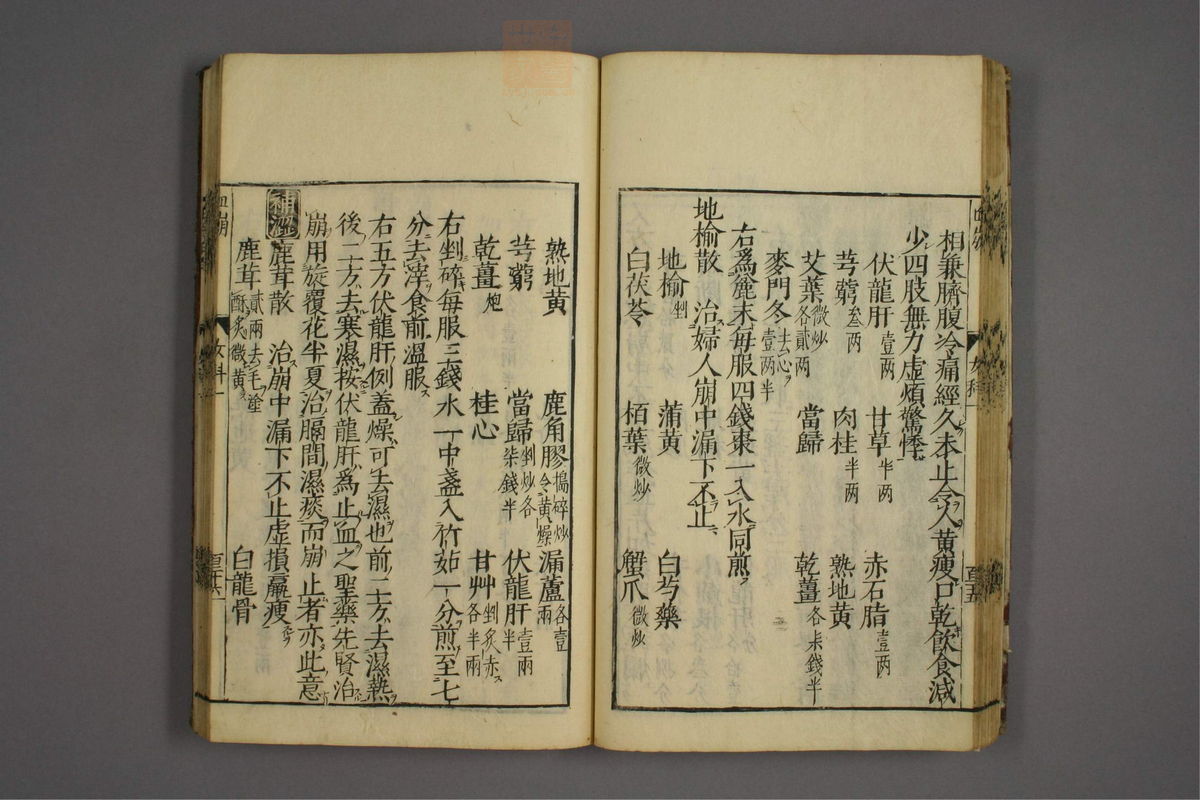 相乗臍腹冷痛經久未止令人黄瘦口乾飲食減
少四肢無力虛煩驚悸
伏龍肝壹两 甘草半两 赤石脂壹两
芎藭叁两 肉桂半两 熟地黄
艾葉微炒各貳两 當歸 乾薑各柒錢半
麥門冬去心壹两半
右爲麄末每服四錢棗一入水同煎
地榆散 治婦人崩中漏下不止
地榆剉 蒲黄 白芍藥
白茯苓 栢葉微炒 蟹爪微炒
血崩 女科一 百十五
熟地黄 鹿角膠搗碎炒令黄燥 漏蘆各壹兩
芎藭 當歸剉炒各柒錢半 伏龍肝壹兩半
乾薑炮 桂心 甘艸剉炙赤各半兩
右剉碎每服三錢水一中盞入竹茹一分煎至七
分去滓食前溫服
右五方伏龍肝例蓋燥可去濕也前二方去濕熱
後二方去寒濕按伏龍肝爲止血之聖藥先賢治
崩用旋覆花半夏治膈間濕痰而崩止者亦此意
補澀 鹿茸散 治崩中漏下不止虛損羸瘦
鹿茸貳兩去毛塗酥炙微黄 白龍骨
血崩 女科一 百十六